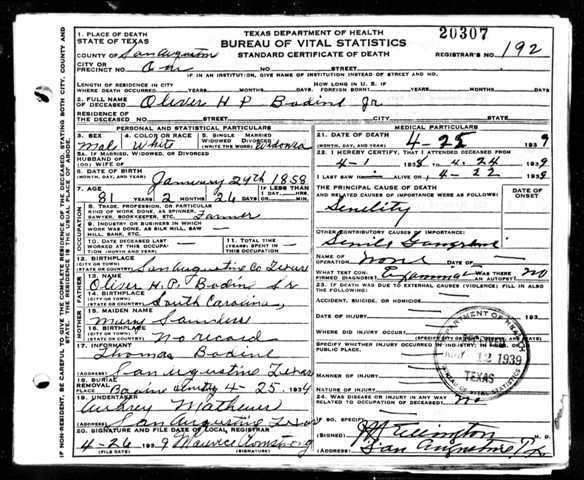 1. PLACE OF DEATH
STATE OF TEXAS
TEXAS DEPARTMENT OF HEALTH
BUREAU OF VITAL STATISTICS
STANDARD CERTIFICATE OF DEATH
20307
REGISTRAR'S NO. 192
COUNTY OF San Augustine
CITY OR
PRECINCT NO. One NO. STREET
IF IN AN INSTITUTION, GIVE NAME OF INSTITUTION INSTEAD OF STREET AND NO.
LENGTH OF RESIDENCE
WHERE DEATH OCCURRED YEARS MONTHS DAYS
HOW LONG IN U. S. IF
FOREIGN BORN? YEARS MONTHS DAYS
2. FULL NAME
OF DECEASED Oliver H P Bodine Jr
RESIDENCE OF
THE DECEASED NO. STREET CITY STATE
PERSONAL AND STATISTICAL PARTICULARS
3. SEX
Male
4. COLOR OR RACE
White
5. SINGLE MARRIED
WIDOWED DIVORCED
(WRITE THE WORD)
5A. IF MARRIED, WIDOWED, OR DIVORCED
HUSBAND OF
(OR) WIFE OF
6. DATE OF BIRTH
(MONTH, DAY, AND YEAR) January 29th 1858
7. AGE
81 YEARS 2 MONTHS 26 DAYS
IF LESS THAN 1 DAY
8. TRADE, PROFESSION, OR PARTICULAR
KIND OF WORK DONE, AS SPINNER,
SAWYER, BOOKKEEPER, ETC. Farmer
9. INDUSTRY OR BUSINESS IN WHICH
WORK WAS DONE, AS SILK MILL, SAW
MILL, BANK, ETC.
10. DATE DECEASED LAST
WORKED AT THIS OCCUPATION
(MONTH AND YEAR)
11. TOTAL TIME
(YEARS) SPENT IN
THIS OCCUPATION
12. BIRTHPLACE
(CITY OR TOWN)
(STATE OR COUNTRY) San Augustine Co Texas
13. NAME
Oliver H. P. Bodin Sr
14. BIRTHPLACE
(CITY OR TOWN)
(STATE OR COUNTRY) South Carolina
15. MAIDEN NAME
Saunders
16. BIRTHPLACE
(CITY OR TOWN)
(STATE OR COUNTRY) No record
17. INFORMANT
Thomas Bodine
(ADDRESS) San Augustine Texas
18. BURIAL
REMOVAL
PLACE 4-25. 1939
19. UNDERTAKER
Aubrey Mathews
(ADDRESS) San Augustine Texas
20. SIGNATURE AND FILE DATE OF LOCAL REGISTRAR
4-26 1939 Maurice Armstrong
(FILE DATE) (SIGNATURE)
MEDICAL PARTICULARS
21. DATE OF DEATH
(MONTH, DAY, AND YEAR) 1939
22. I HEREBY CERTIFY, THAT I ATTENDED DECEASED FROM
4-1 1939 TO 4-24 1939
I LAST SAW H ALIVE ON 4-22 1939
THE PRINCIPAL CAUSE OF DEATH
AND RELATED CAUSES OF IMPORTANCE WERE AS FOLLOWS:
DATE OF
ONSET
Senility
OTHER CONTRIBUTORY CAUSES OF IMPORTANCE:
Senile Gangrene
NAME OF
OPERATION None
WHAT TEST CONFIRMED
DIAGNOSIS? WAS THERE
AN AUTOPSY? no
23. IF DEATH WAS DUE TO EXTERNAL CAUSES (VIOLENCE) FILL IN ALSO
THE FOLLOWING:
ACCIDENT, SUICIDE, OR HOMICIDE
DATE OF INJURY
WHERE DID INJURY OCCUR?
SPECIFY WHETHER INJURY OCCURRED IN INDUSTRY, IN HOME, OR IN
PUBLIC PLACE.
MANNER OF INJURY
NATURE OF INJURY
24. WAS DISEASE OR INJURY IN ANY WAY
RELATED TO OCCUPATION OF DECEASED? no
IF SO, SPECIFY
(SIGNED) Ellington M. D.
(ADDRESS) San Augustine Tx
DEPARTMENT OF HEALTH
MAY 12 1939
TEXAS
BUREAU OF VITAL STATISTICS
OCCUPATION
FATHER
MOTHER